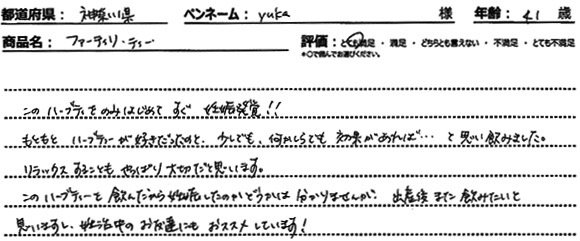 都道府県： 神奈川県 ペンネーム： yuka 様 年齢： 41 歳
商品名： ファーティリ・ティー 評価： とても満足 ・ 満足 ・ どちらとも言えない ・ 不満足 ・ とても不満足
*○で囲んでお選びください。
このハーブティをのみはじめて すぐ 妊娠発覚!!
もともと ハーブティーが好きだったのと、少しでも、何かしらでも 効果があれば… と思い飲みました。
リラックスすることも やっぱり大切だと思います。
このハーブティーを飲んだから妊娠したのかどうかは分かりませんが、出産後また飲みたいと
思いますし、妊活中のお友達にもおススメしています！